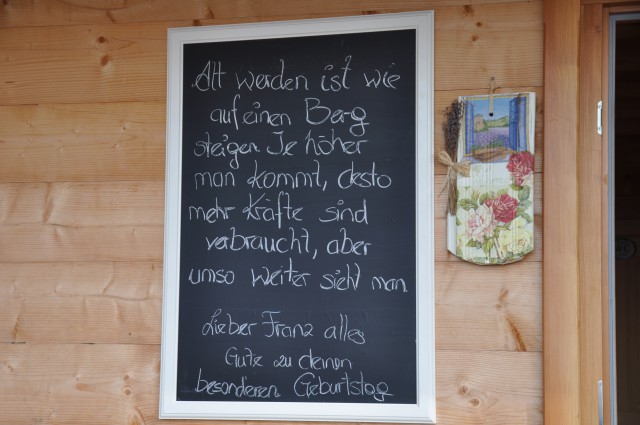 Alt werden ist wie
auf einen Berg
steigen. Je höher
man kommt, desto
mehr Kräfte sind
verbraucht, aber
umso weiter sieht man
Lieber Franz alles
Gute zu deinen
besonderen Geburtstag